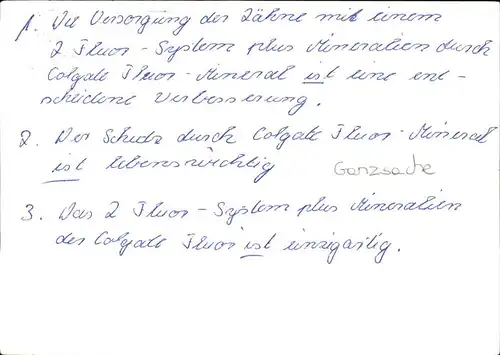 1. Die Versorgung der Zähne mit einem
2 Fluor-System plus Mineralien durch
Colgate Fluor-Mineral ist eine ent-
scheidene Verbesserung.
2. Der Schutz durch Colgate Fluor-Mineral
ist lebenswichtig
Ganzsache
3. Das 2 Fluor-System plus Mineralien
der Colgate Fluor ist einzigartig.